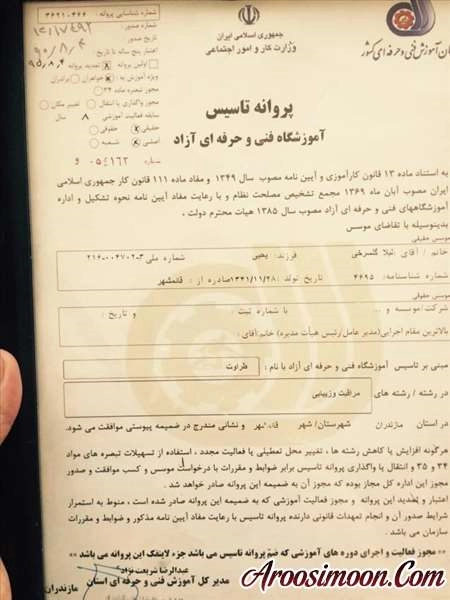 شماره شناسایی پروانه: ۳۶۲۱۰۴۶۶
شماره صدور:
تاریخ صدور: ۹۰/۸/۴
اعتبار پنج ساله تا تاریخ: ۹۵/۸/۴
اولین پروانه تمدید پروانه
ویژه آموزش به: خواهران برادران
مجوز تبصره ماده ۳۴
مجوز واگذاری یا انتقال تغییر مکان
سابقه فعالیت آموزشی ۸ سال
حقیقی حقوقی
اصلی شعبه
شماره ۰۵۴۱۶۲ و
جمهوری اسلامی ایران
وزارت کار و امور اجتماعی
سازمان آموزش فنی و حرفه ای کشور
پروانه تاسیس
آموزشگاه فنی و حرفه ای آزاد
به استناد ماده ۱۳ قانون کارآموزی و آیین نامه مصوب سال ۱۳۴۹ و مفاد ماده ۱۱۱ قانون کار جمهوری اسلامی
ایران مصوب آبان ماه ۱۳۶۹ مجمع تشخیص مصلحت نظام و با رعایت مفاد آیین نامه نحوه تشکیل و اداره
آموزشگاههای فنی و حرفه ای آزاد مصوب سال ۱۳۸۵ هیات محترم دولت،
بدینوسیله با تقاضای موسس
موسس حقیقی
خانم / آقای: لیلا گلسرخی فرزند: یحیی شماره ملی
شماره شناسنامه: ۴۶۹۵ تاریخ تولد: ۱۳۴۱/۱۱/۲۸ صادره از: قائمشهر
موسس حقوقی
شرکت/موسسه و ... با شماره ثبت: و تاریخ:
بالاترین مقام اجرایی(مدیر عامل/رئیس هیأت مدیره) خانم/آقای:
مبنی بر تاسیس آموزشگاه فنی و حرفه ای آزاد با نام: طراوت
در رشته / رشته های مراقبت وزیبایی
در استان مازندران شهرستان/ شهر و نشانی مندرج در ضمیمه پیوستی موافقت می شود.
هرگونه افزایش یا کاهش رشته ها ، تغییر محل تعطیلی یا فعالیت مجدد ، استفاده از تسهیلات تبصره های مواد
۳۴ و ۳۵ و انتقال یا واگذاری پروانه تاسیس برابر ضوابط و مقررات با درخواست موسس و کسب موافقت و صدور
مجوز این اداره کل مجاز بوده که مجوز آن به ضمیمه این پروانه صادر خواهد شد .
اعتبار و تمدید این پروانه و مجوز فعالیت آموزشی که به ضمیمه این پروانه صادر شده است ، منوط به استمرار
شرایط صدور آن و انجام تعهدات قانونی دارنده پروانه تاسیس با رعایت مفاد آیین نامه مذکور و ضوابط و مقررات
سازمان می باشد .
** مجوز فعالیت و اجرای دوره های آموزشی که ضم پروانه تاسیس می باشد جزء لاینفک این پروانه می باشد **
عبدالرضا شریعت نژاد
مدیر کل آموزش فنی و حرفه ای استان مازندران
Aroosimoon.Com